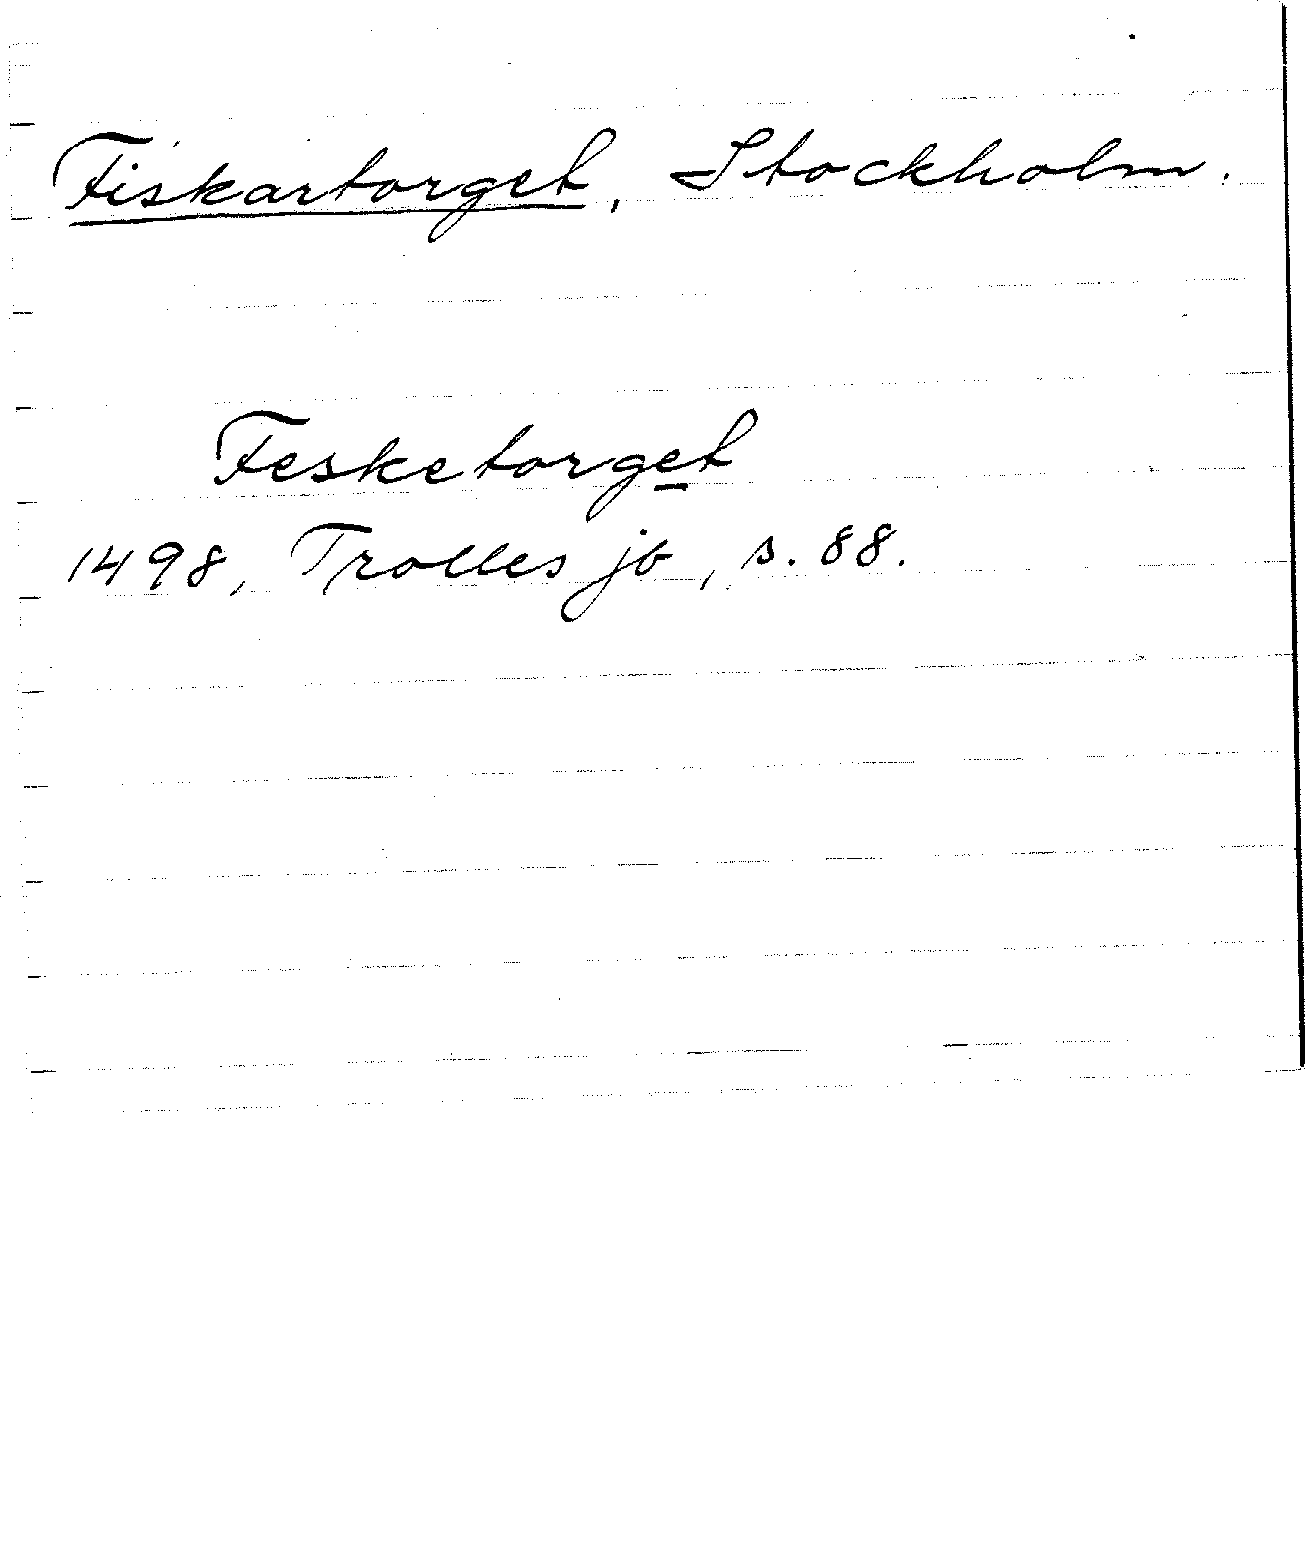 Fiskartorget, Stockholm.
Fesketorget
1498, Trolles jb, s. 88.